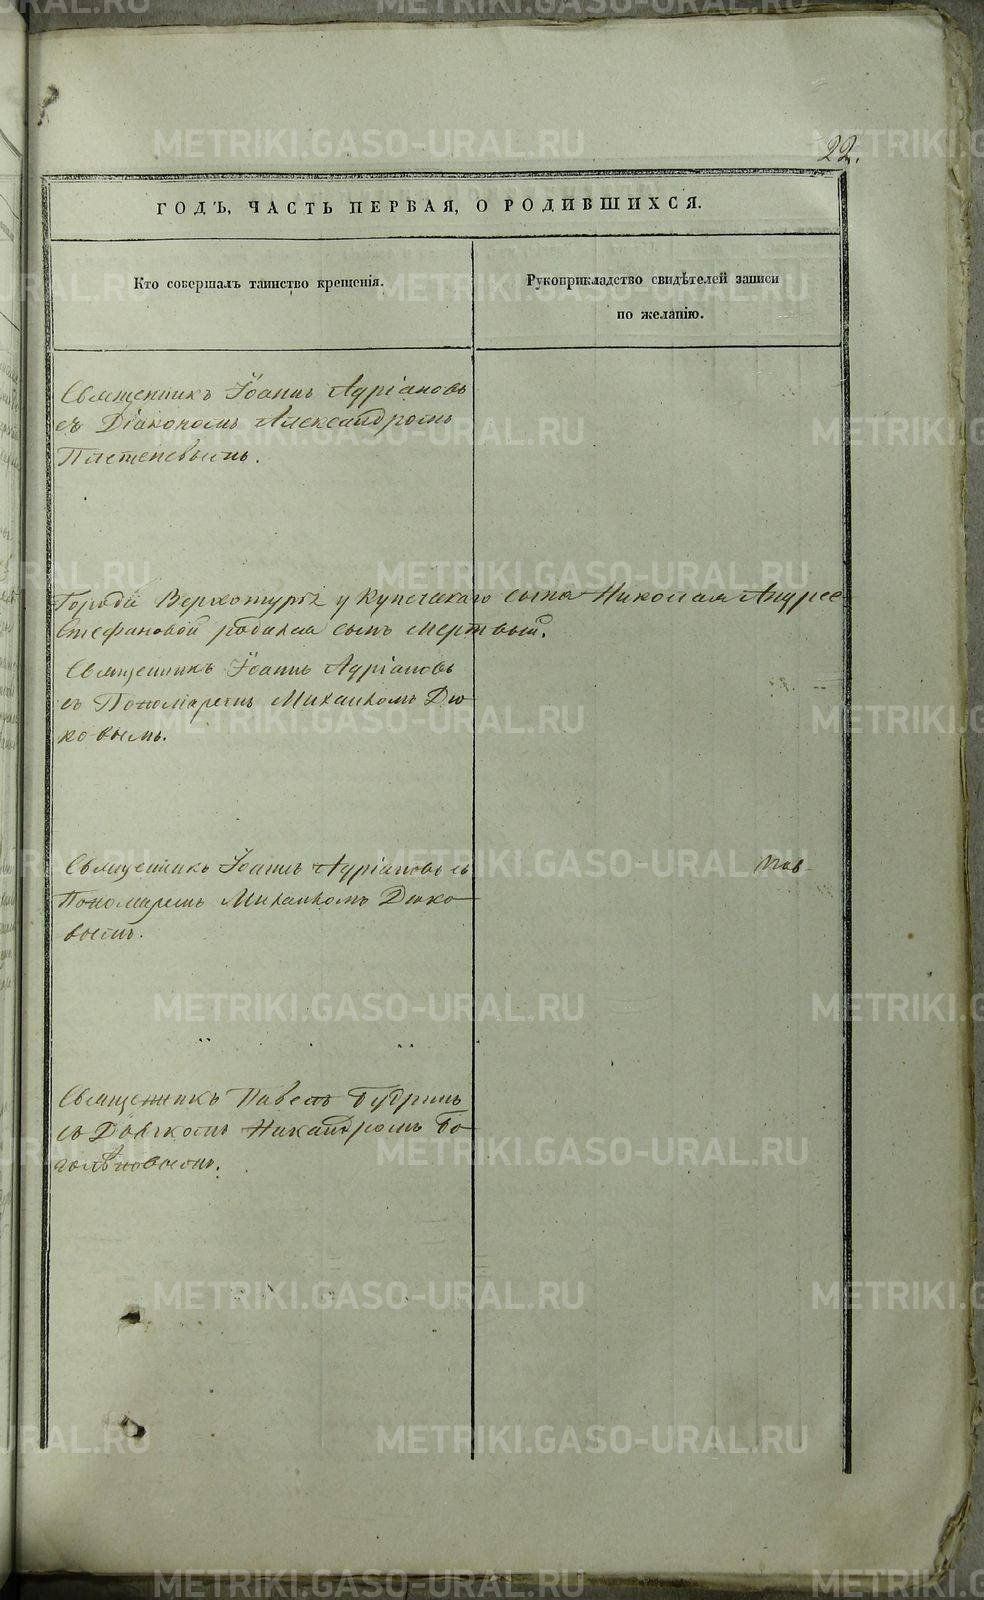 22.
ГОДЪ, ЧАСТЬ ПЕРВАЯ, О РОДИВШИХСЯ.
Кто совершалъ таинство крещенія.
Рукоприкладство свидѣтелей записи
по желанію.
Священникъ Іоаннъ Адріановъ
съ Діакономъ Александромъ
Плетеневымъ.
Города Верхотурья у Купеческаго сына Николая Андрее
Стефановой родился сынъ мертвый.
Священникъ Іоаннъ Адріановъ
съ Пономаремъ Михаиломъ Дю
ковымъ.
Священникъ Іоаннъ Адріановъ съ
Пономаремъ Михаиломъ Дюко
вымъ.
Священникъ Павелъ Будринъ
съ Дьячкомъ Никандромъ Бо
голѣповымъ.
METRIKI.GASO-URAL.RU